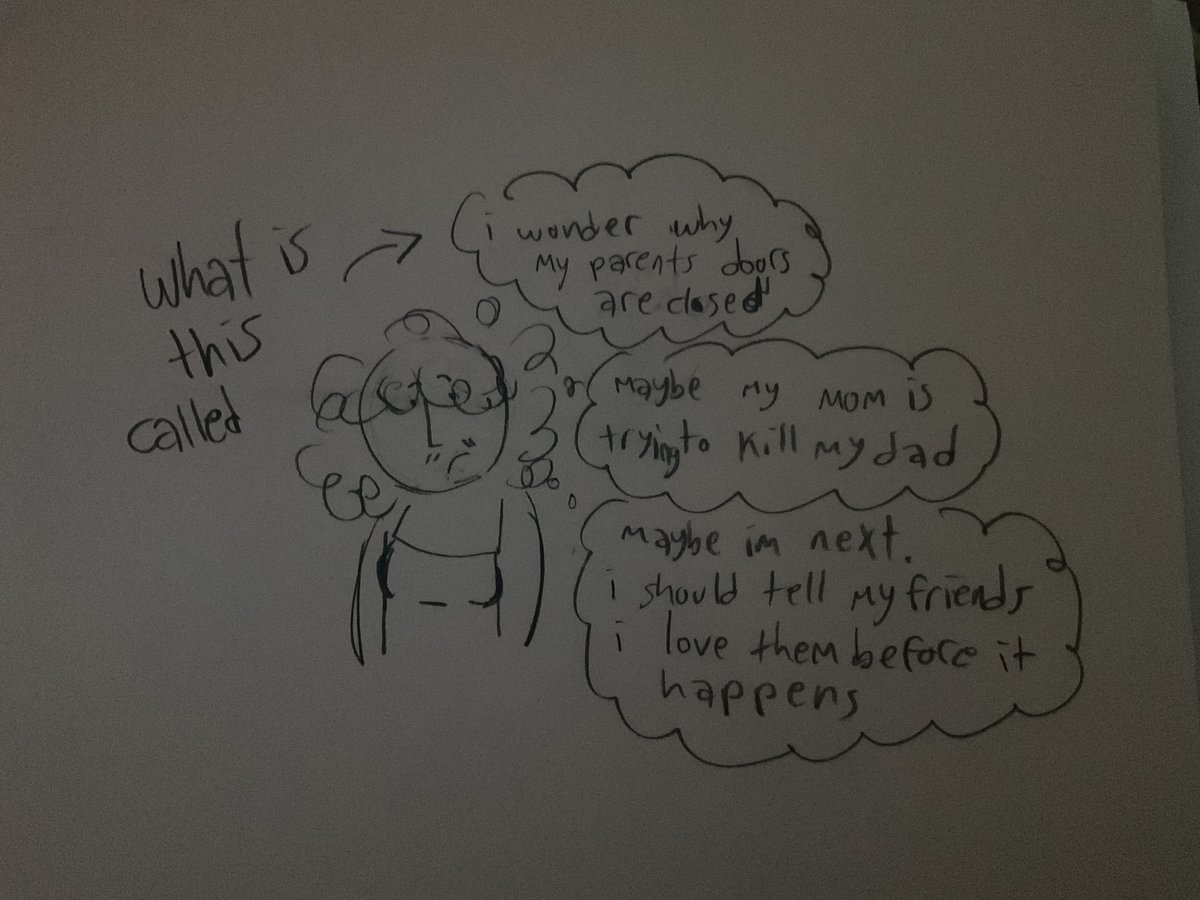 what is
this
called
i wonder why
my parents doors
are closed
maybe my mom is
trying to kill my dad
maybe im next.
i should tell my friends
i love them before it
happens